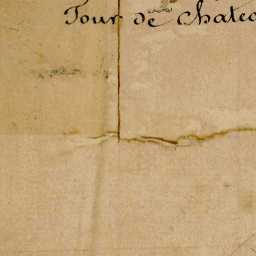 Tour de Chate